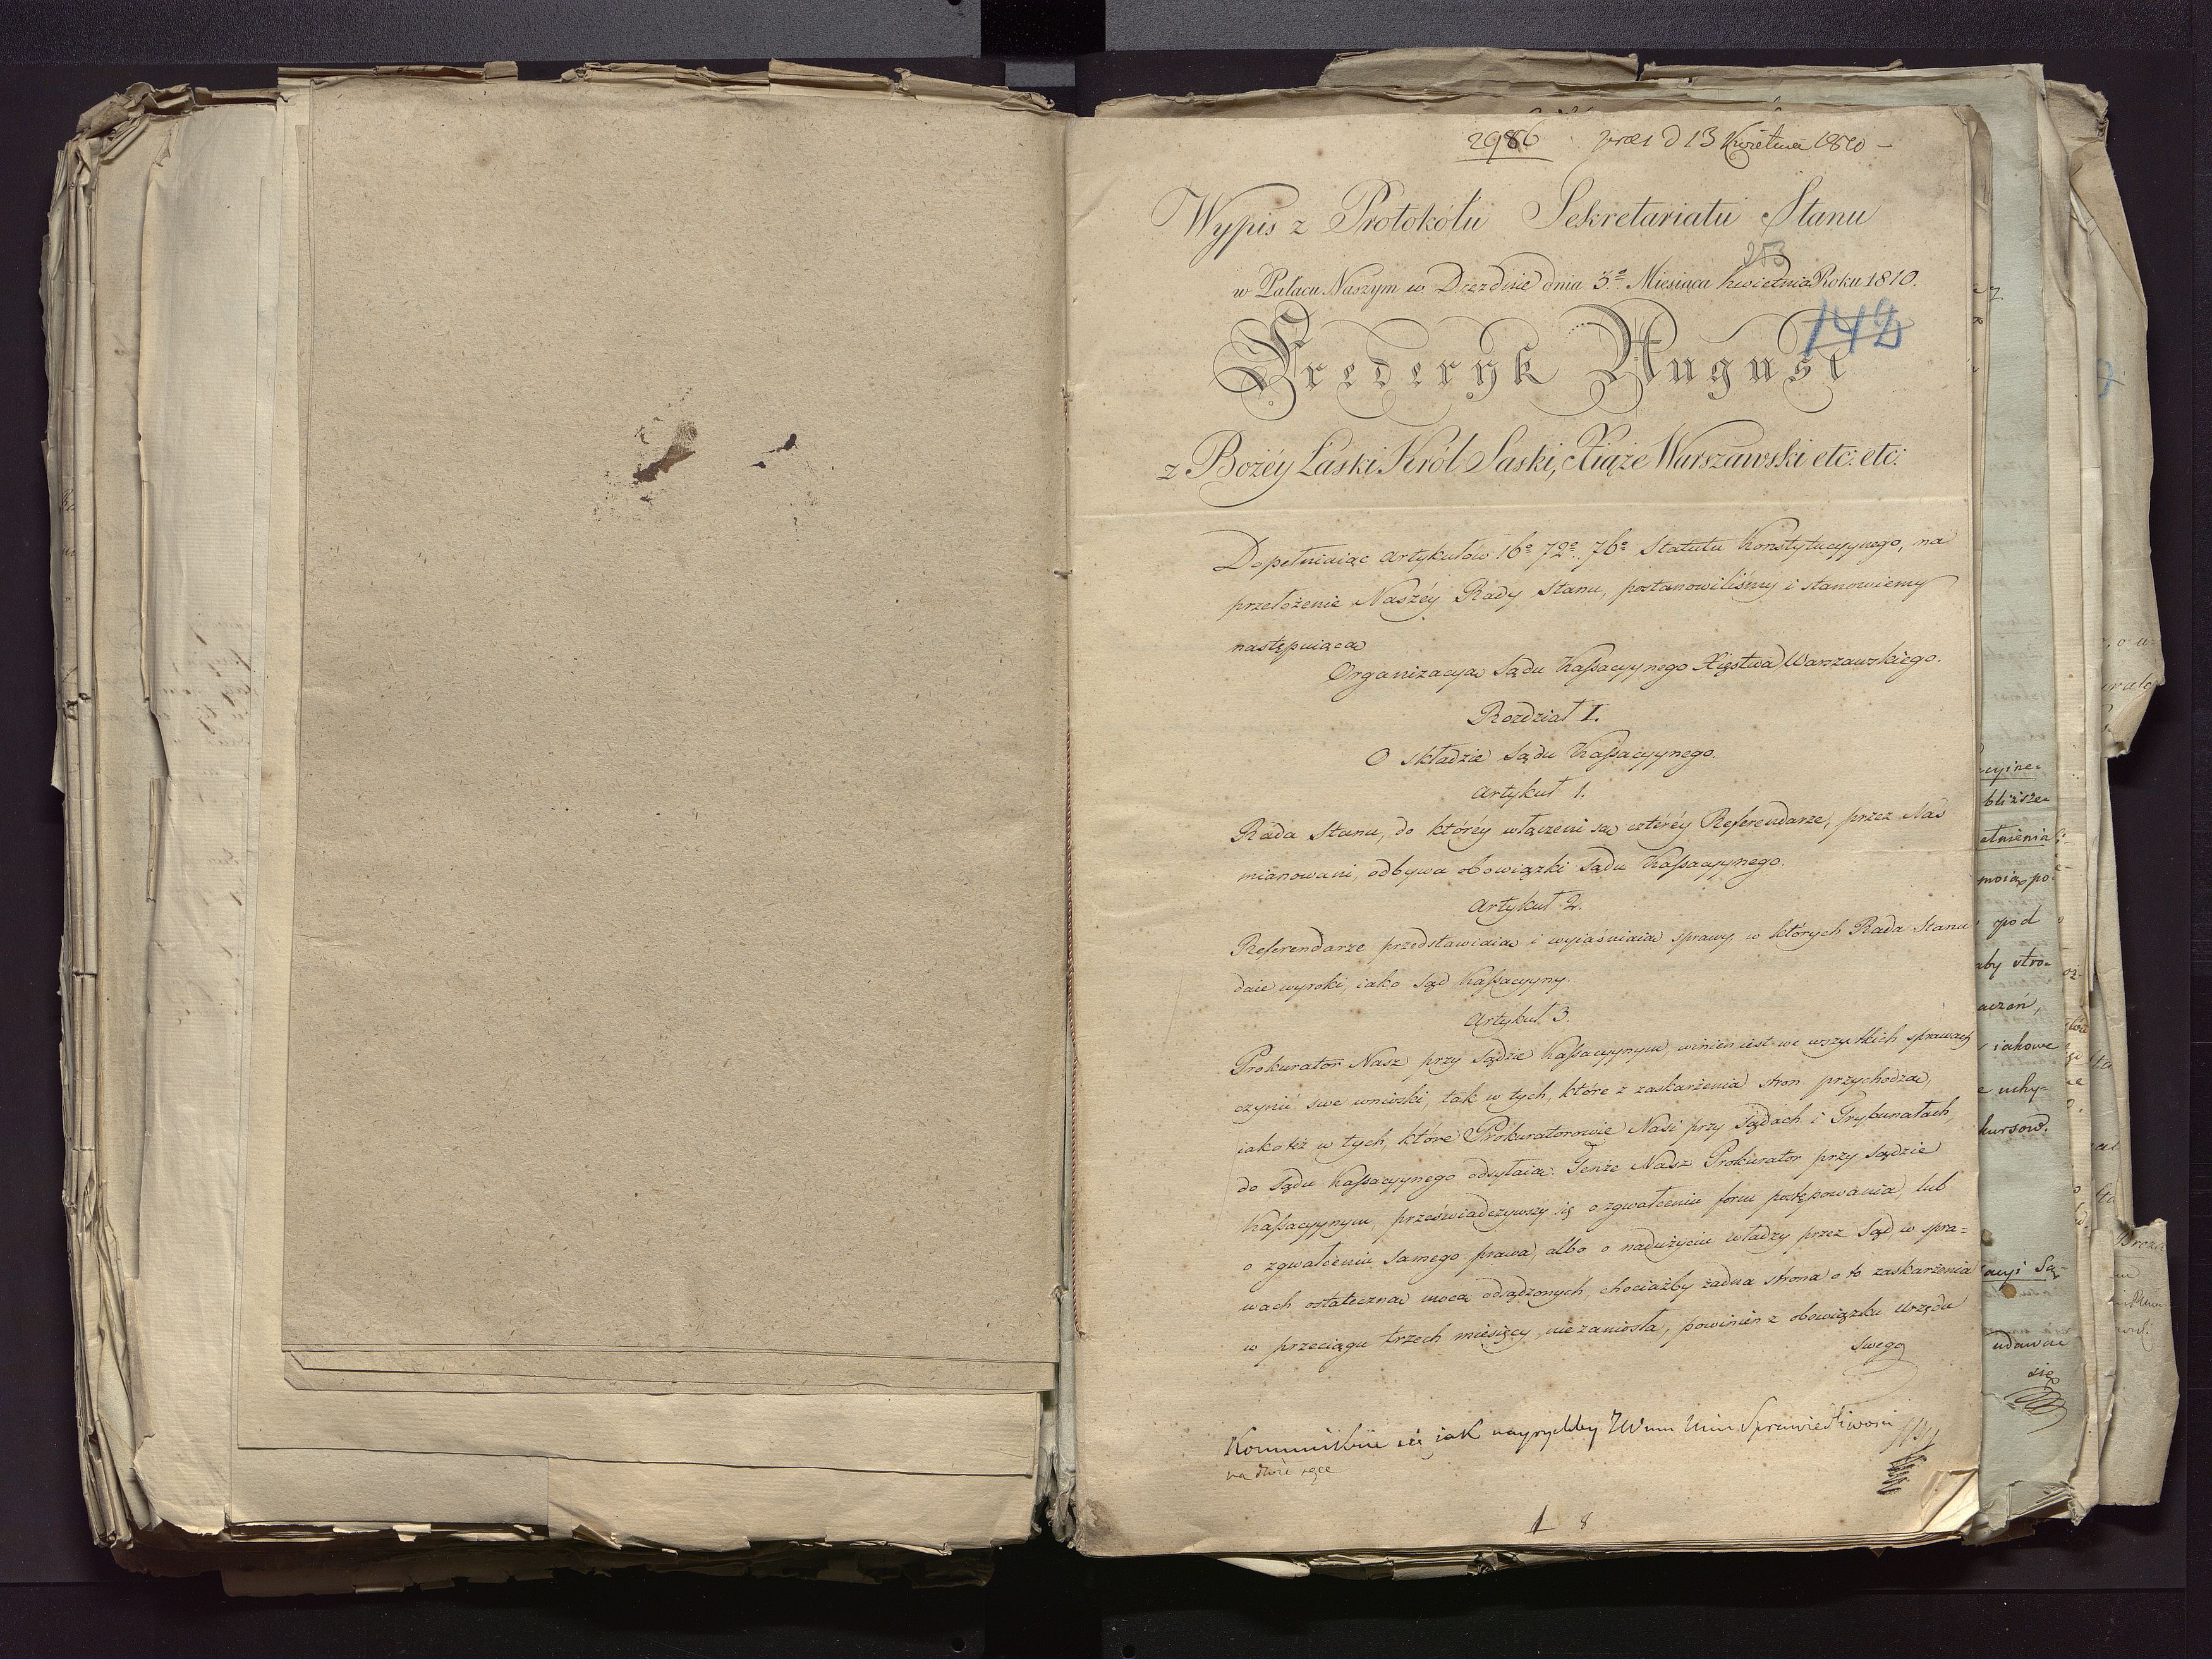 2986 prez d 13 Kwietnia 1810 –
Wypis z Protokółu Sekretariatu Stanu
w Pałacu Naszym w Dreźdnie dnia 3º Miesiąca Kwietnia Roku 1810.
142
Frederyk August
z Bożéy Łaski Król Saski, Xiąże Warszawski etc: etc:
Dopełniaiąc Artykułów 16º 72º, 76º Statutu Konstytucyynego, na
przełożenie Naszéy Rady Stanu, postanowiliśmy i stanowiemy
następuiącą
Organizacya Sądu Kassacyynego Xięstwa Warszawskiego.
Rozdział I.
O składzie Sądu Kassacyynego.
Artykuł 1.
Rada Stanu, do któréy włączeni są cztéréy Referendarze, przez Nas
mianowani, odbywa obowiązki Sądu Kassacyynego.
Artykuł 2.
Referendarze przedstawiaią i wyiaśniaią sprawy, w których Rada Stanu
daie wyroki, iako Sąd Kassacyyny.
Artykuł 3.
Prokurator Nasz przy Sądzie Kassacyynym, winien iest we wszystkich sprawach
czynić swe wnioski, tak w tych, które z zaskarżenia stron przychodzą,
iako też w tych, które Prokuratorowie Nasi przy Sądach i Trybunałach,
do Sądu Kassacyynego odsyłaią. Tenże Nasz Prokurator przy Sądzie
Kassacyynym, przeświadczywszy się o zgwałceniu form postępowania, lub
o zgwałceniu samego prawa, albo o nadużyciu władzy przez Sąd w spra=
wach ostateczną mocą odsądzonych, chociażby żadna strona o to zaskarżenia
w przeciągu trzech miesięcy nie zaniosła, powinien z obowiązku urzędu
swego
Kommunikuie się jak nayrychley JWmu Min Sprawiedliwości
na dwie ręce
1 8
cyine-
bliższe-
ełnienia
moią po
pod
aby stro-
aczeń,
iakowe
e uchy-
kursów.
acyi Są-
udawne
się